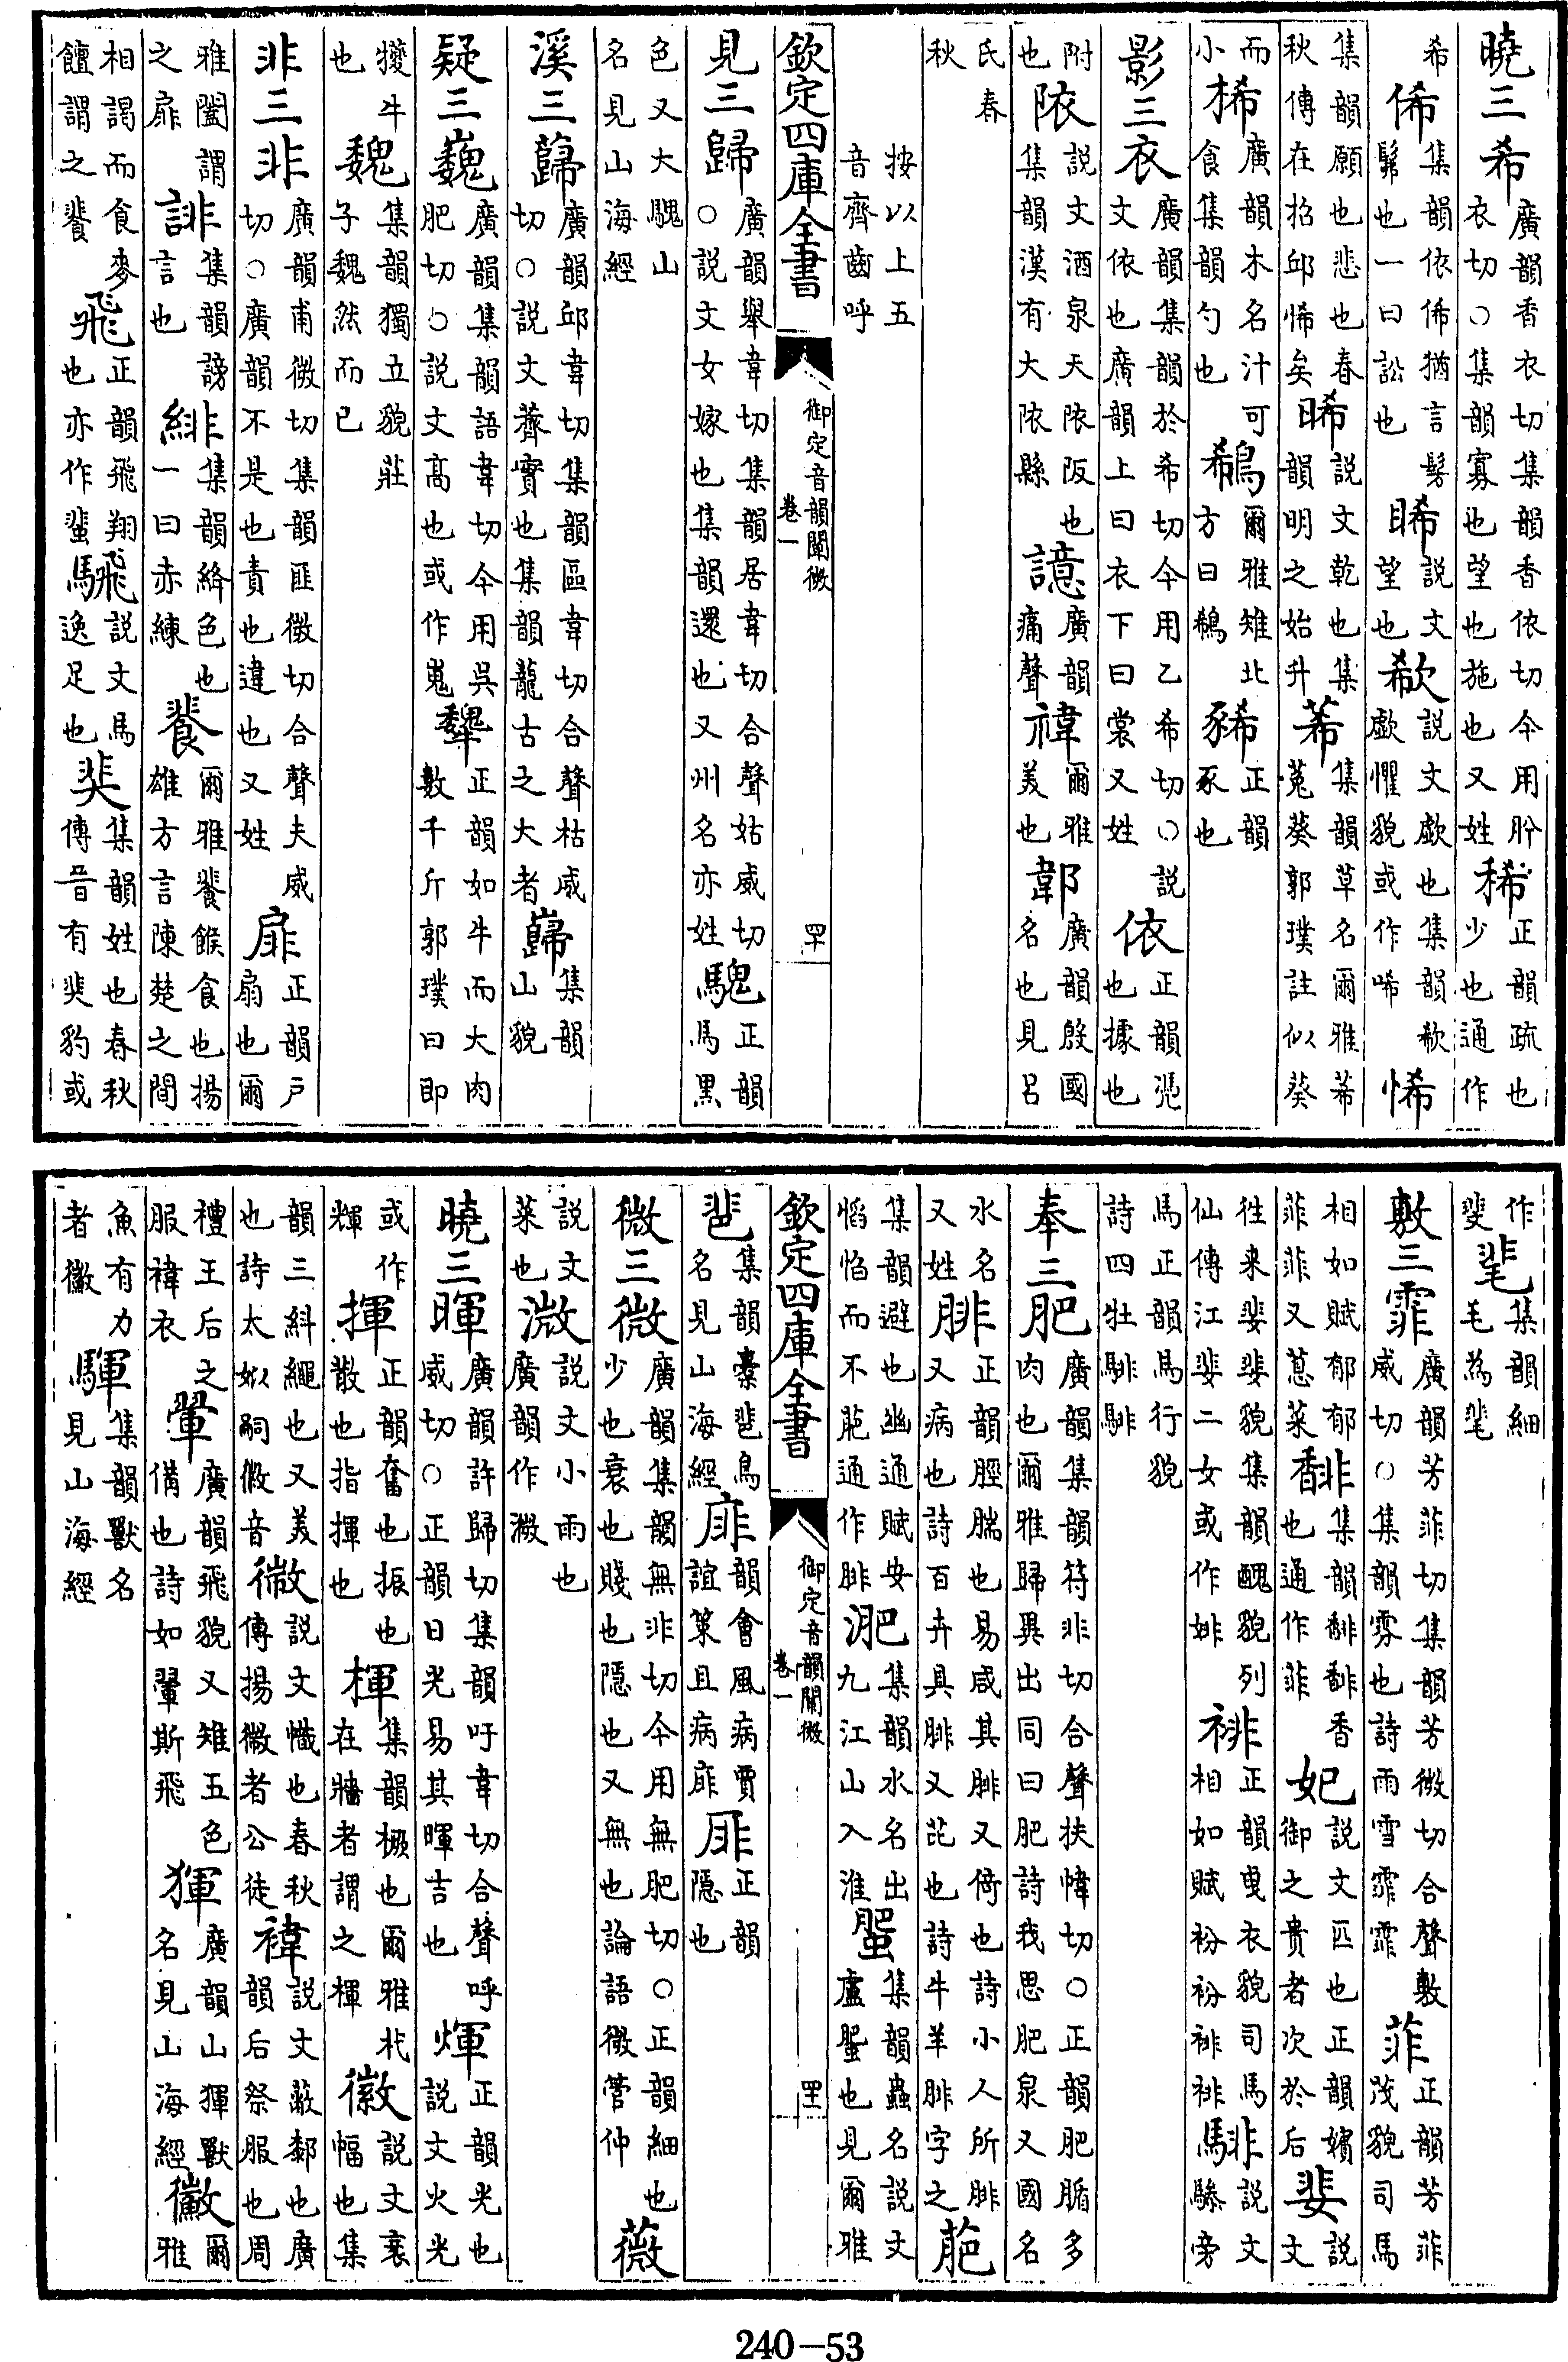 曉三希廣韻香衣切集韻香依切今用肸衣切○集韻寡也望也施也又姓稀正韻疏也少也通作
希俙集韻依俙猶言髣髴也一曰訟也睎說文望也欷說文歔也集韻欷歔懼貌或作唏悕
集韻願也悲也春秋傳在招邱悕矣晞說文乾也集韻明之始升莃集韻草名爾雅莃菟葵郭璞註似葵
而小桸廣韻木名汁可食集韻勺也鵗爾雅雉北方曰鵗豨正韻豕也
影三衣廣韻集韻於希切今用乙希切○說文依也廣韻上曰衣下曰裳又姓依正韻憑也據也
附也說文酒泉天阪也集韻漢有大縣譩廣韻痛聲禕爾雅美也郼廣韻殷國名也見呂
氏春秋
按以上五音齊齒呼
欽定四庫全書 御定音韻闡微 卷一 四十
見三歸廣韻舉韋切集韻居韋切合聲姑威切○說文女嫁也集韻還也又州名亦姓騩正韻馬黑
色又大騩山名見山海經
溪三蘬廣韻邱韋切集韻區韋切合聲枯威切○說文薺實也集韻龍古之大者巋集韻山貌
疑三巍廣韻集韻語韋切今用吳肥切○說文高也或作嵬犩正韻如牛而大肉數千斤郭璞曰即
犪牛也魏集韻獨立貌莊子魏然而已
非三非廣韻甫微切集韻匪微切合聲夫威切○廣韻不是也責也違也又姓扉正韻戶扇也爾
雅闔謂之扉誹集韻謗言也緋集韻絳色也一曰赤練餥爾雅餥餱食也揚雄方言陳楚之間
相謁而食麥饘謂之餥飛正韻飛翔也亦作蜚騛說文馬逸足也猆集韻姓也春秋傳晉有猆豹或
作斐毞集韻細毛為毞
敷三霏廣韻芳菲切集韻芳微切合聲敷威切○集韻雰也詩雨雪霏霏菲正韻芳菲茂貌司馬
相如賦郁郁菲菲又蔥菜馡集韻馡馡香也通作菲妃說文匹也正韻嬪御之貴者次於后婓說文
往來婓婓貌集韻醜貌列仙傳江婓二女或作婔裶正韻曳衣貌司馬相如賦衯衯裶裶騑說文驂旁
馬正韻馬行貌詩四牡騑騑
奉三肥廣韻集韻符非切合聲扶幃切○正韻肥腯多肉也爾雅歸異出同曰肥詩我思肥泉又國名
水名又姓腓正韻脛腨也易咸其腓又倚也詩小人所腓又病也詩百卉具腓又芘也詩牛羊腓字之萉
集韻避也幽通賦安慆慆而不萉通作腓淝集韻水名出九江山入淮蜰集韻蟲名說文盧蜰也見爾雅
欽定四庫全書 御定音韻闡微 卷一 四十一
名見山海經痱韻會風病賈誼策且病痱厞正韻隱也
微三微廣韻集韻無非切今用無肥切○正韻細也少也衰也賤也隱也又無也論語微管仲薇
說文菜也溦說文小雨也廣韻作溦
曉三暉廣韻許歸切集韻吁韋切合聲呼威切○正韻日光易其暉吉也煇正韻光也說文火光
或作輝揮正韻奮也振也散也指揮也楎集韻橛也爾雅杙在牆者謂之楎徽說文衺幅也集
韻三糾繩也又美也詩太姒嗣徽音㣲說文幟也春秋傳揚徽者公徒褘說文蔽厀也廣韻后祭服也周
禮王后之服褘衣翬廣韻飛貌又雉五色備也詩如翬斯飛㺔廣韻山㺔獸名見山海經黴爾雅
魚有力者徽㹆集韻獸名見山海經
240-53